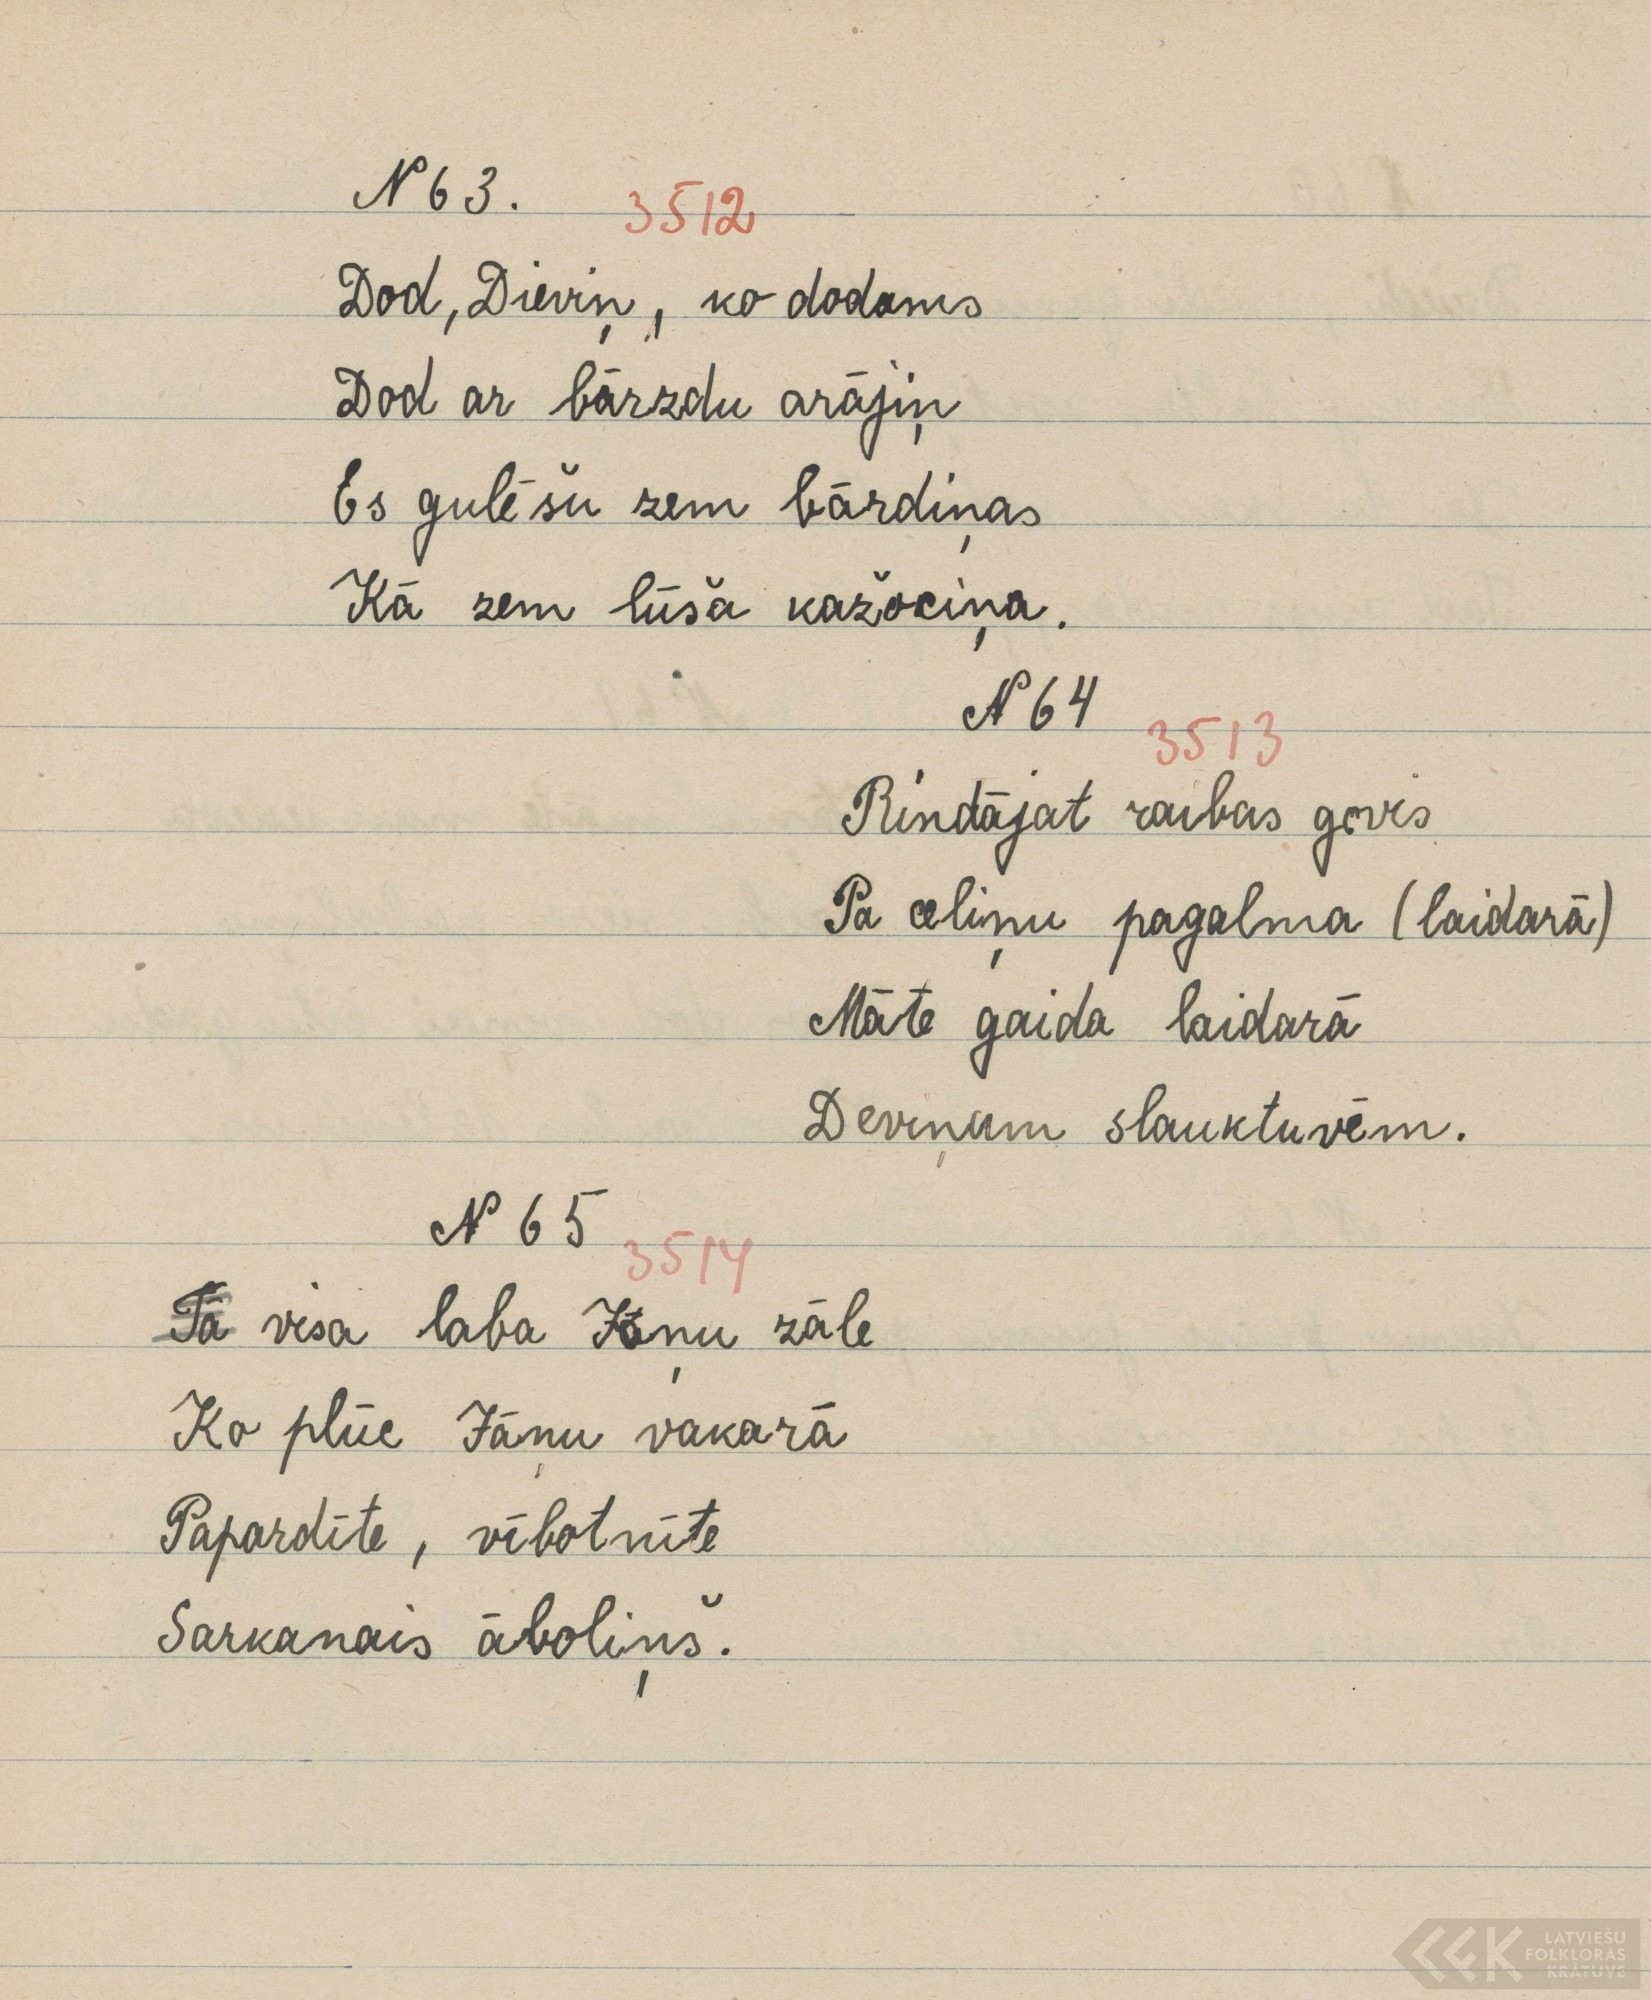 N 63.
3512
Dod, Dieviņ, ko dodams
Dod ar bārzdu arājiņ
Es gulēšu zem bārdiņas
Kā zem lūša kažociņa.
N 64
3513
Rindājat raibas govis
Pa celiņu pagalma (laidarā)
Māte gaida laidarā
Deviņam slauktuvēm.
N 65
3514
Tā visa laba Jāņu zāle
Ko plūc Jāņu vakarā
Papardīte, vībotnīte
Sarkanais āboliņš.
LATVIEŠU
FOLKLORAS
KRĀTUVE